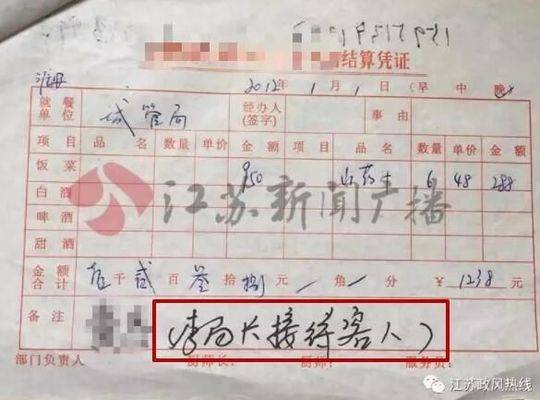 结算凭证
2012年1月1日(早 中 晚
就餐单位 城管局 经办人(签字) 事由
项目 品名 数量 单价 金额 项目 品名 数量 单价 金额
饭菜 950 6 48 288
白酒
啤酒
甜酒
江苏新闻广播
金额合计 壹千贰百叁拾捌元 / 角 / 分 ¥ 1238
备注 (李局长接待客人)
部门负责人 厨师长: 服务员:
江苏政风热线